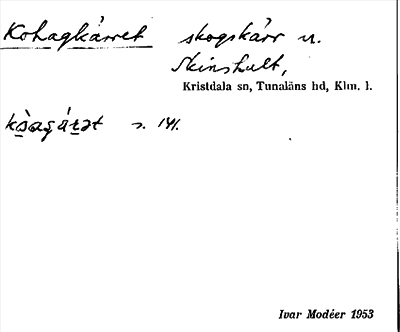 Kohagkärret skogskärr u.
Skinshult,
Kristdala sn, Tunaläns hd, Klm. l.
s. 141.
Ivar Modéer 1953